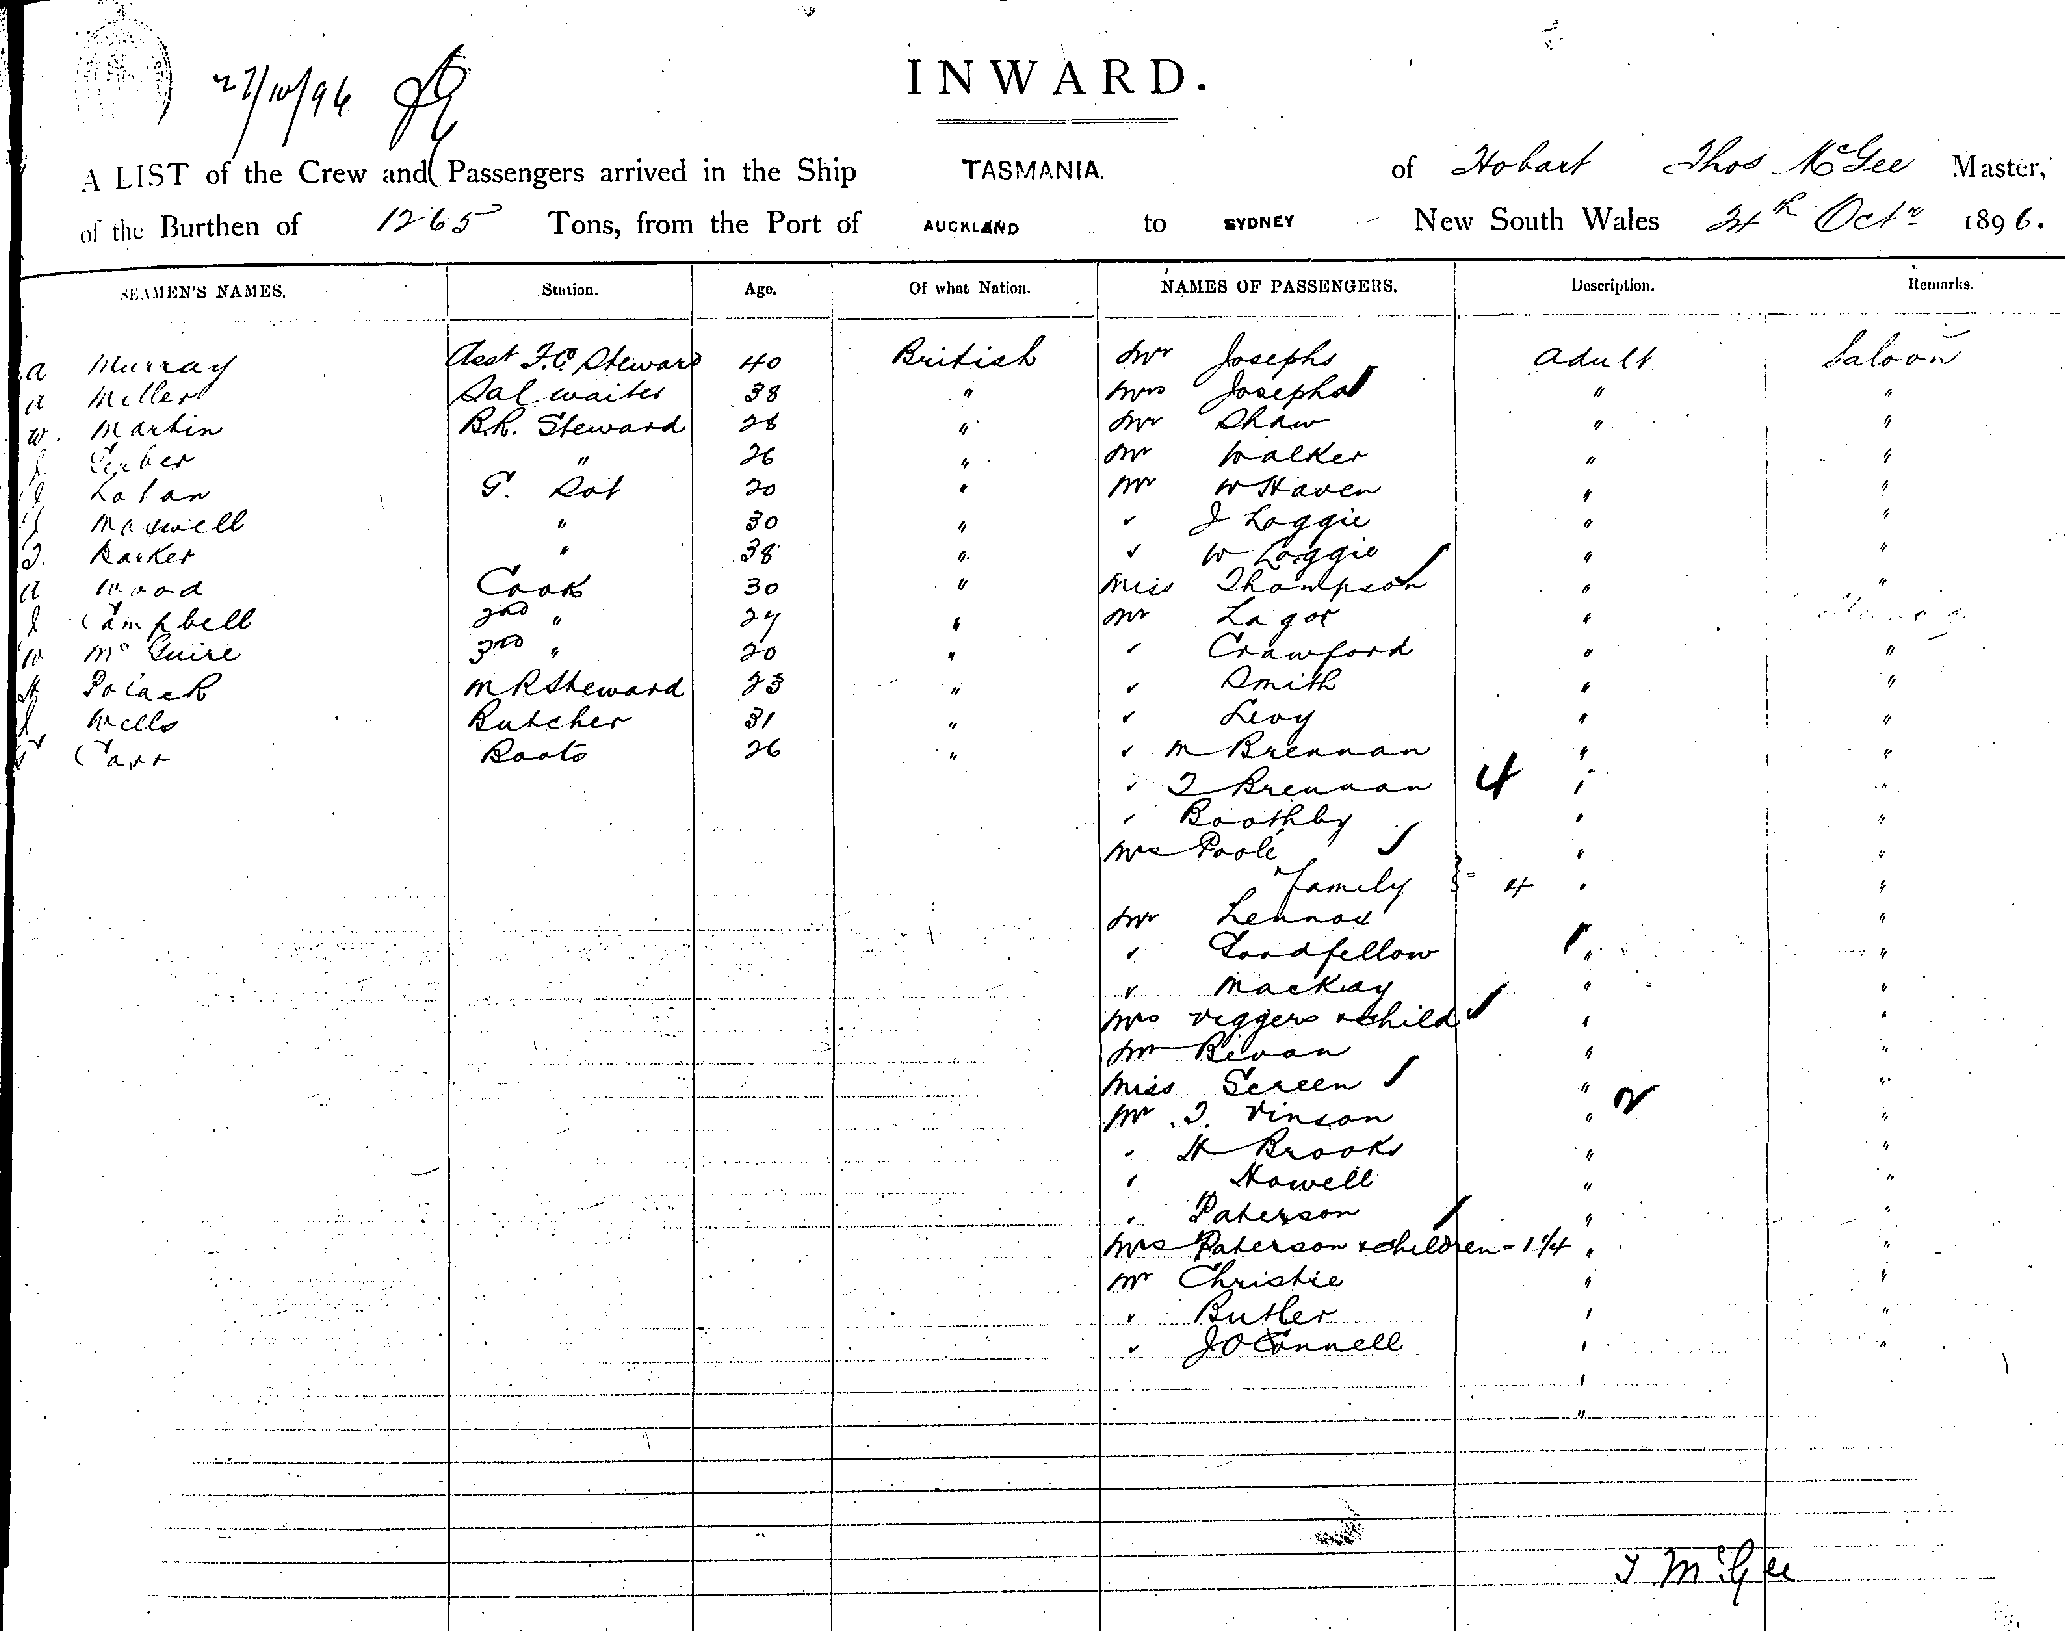 27/10/96
INWARD.
A LIST of the Crew and Passengers arrived in the Ship TASMANIA. of Hobart Thos McGee Master,
of the Burthen of 1265 Tons, from the Port of AUCKLAND to SYDNEY New South Wales 24th Octr 1896.
SEAMEN'S NAMES. Station. Age. Of what Nation. NAMES OF PASSENGERS. Description. Remarks.
a Murray Asst F.C. Steward 40 British Mr Josephs adult Saloon
a Miller Sal waiter 38 " Mrs Josephs " "
W. Martin B.R. Steward 28 " Mr Shaw " "
" 26 " Mr Walker " "
20 " Mr W Haven " "
J Maxwell " 30 " " J Loggie " "
Barker " 38 " " W Loggie " "
a Wood Cook 30 " Miss Thompson " "
J Campbell 2nd " 27 " Mr "
W McGuire 3rd " 20 " " Crawford " "
H Polack M R Steward 23 " " Smith " "
J Wells Butcher 31 " " Levy " "
Carr Boots 26 " " M Brennan " "
" T Brennan 4 " "
" Boothby " "
Mrs Poole " "
" family } = 4 " "
Mr Lennox " "
" Goodfellow " "
" Mackay " "
Mrs Viggers & child " "
Mr Bevan " "
Miss Sereen " "
Mr T. Vinson " 2 "
" H Brooks " "
" Howell " "
" Paterson " "
Mrs Paterson & children = 1 1/4 " "
Mr Christie " "
" Butler " "
" J O Connell " "
"
"
T McGee